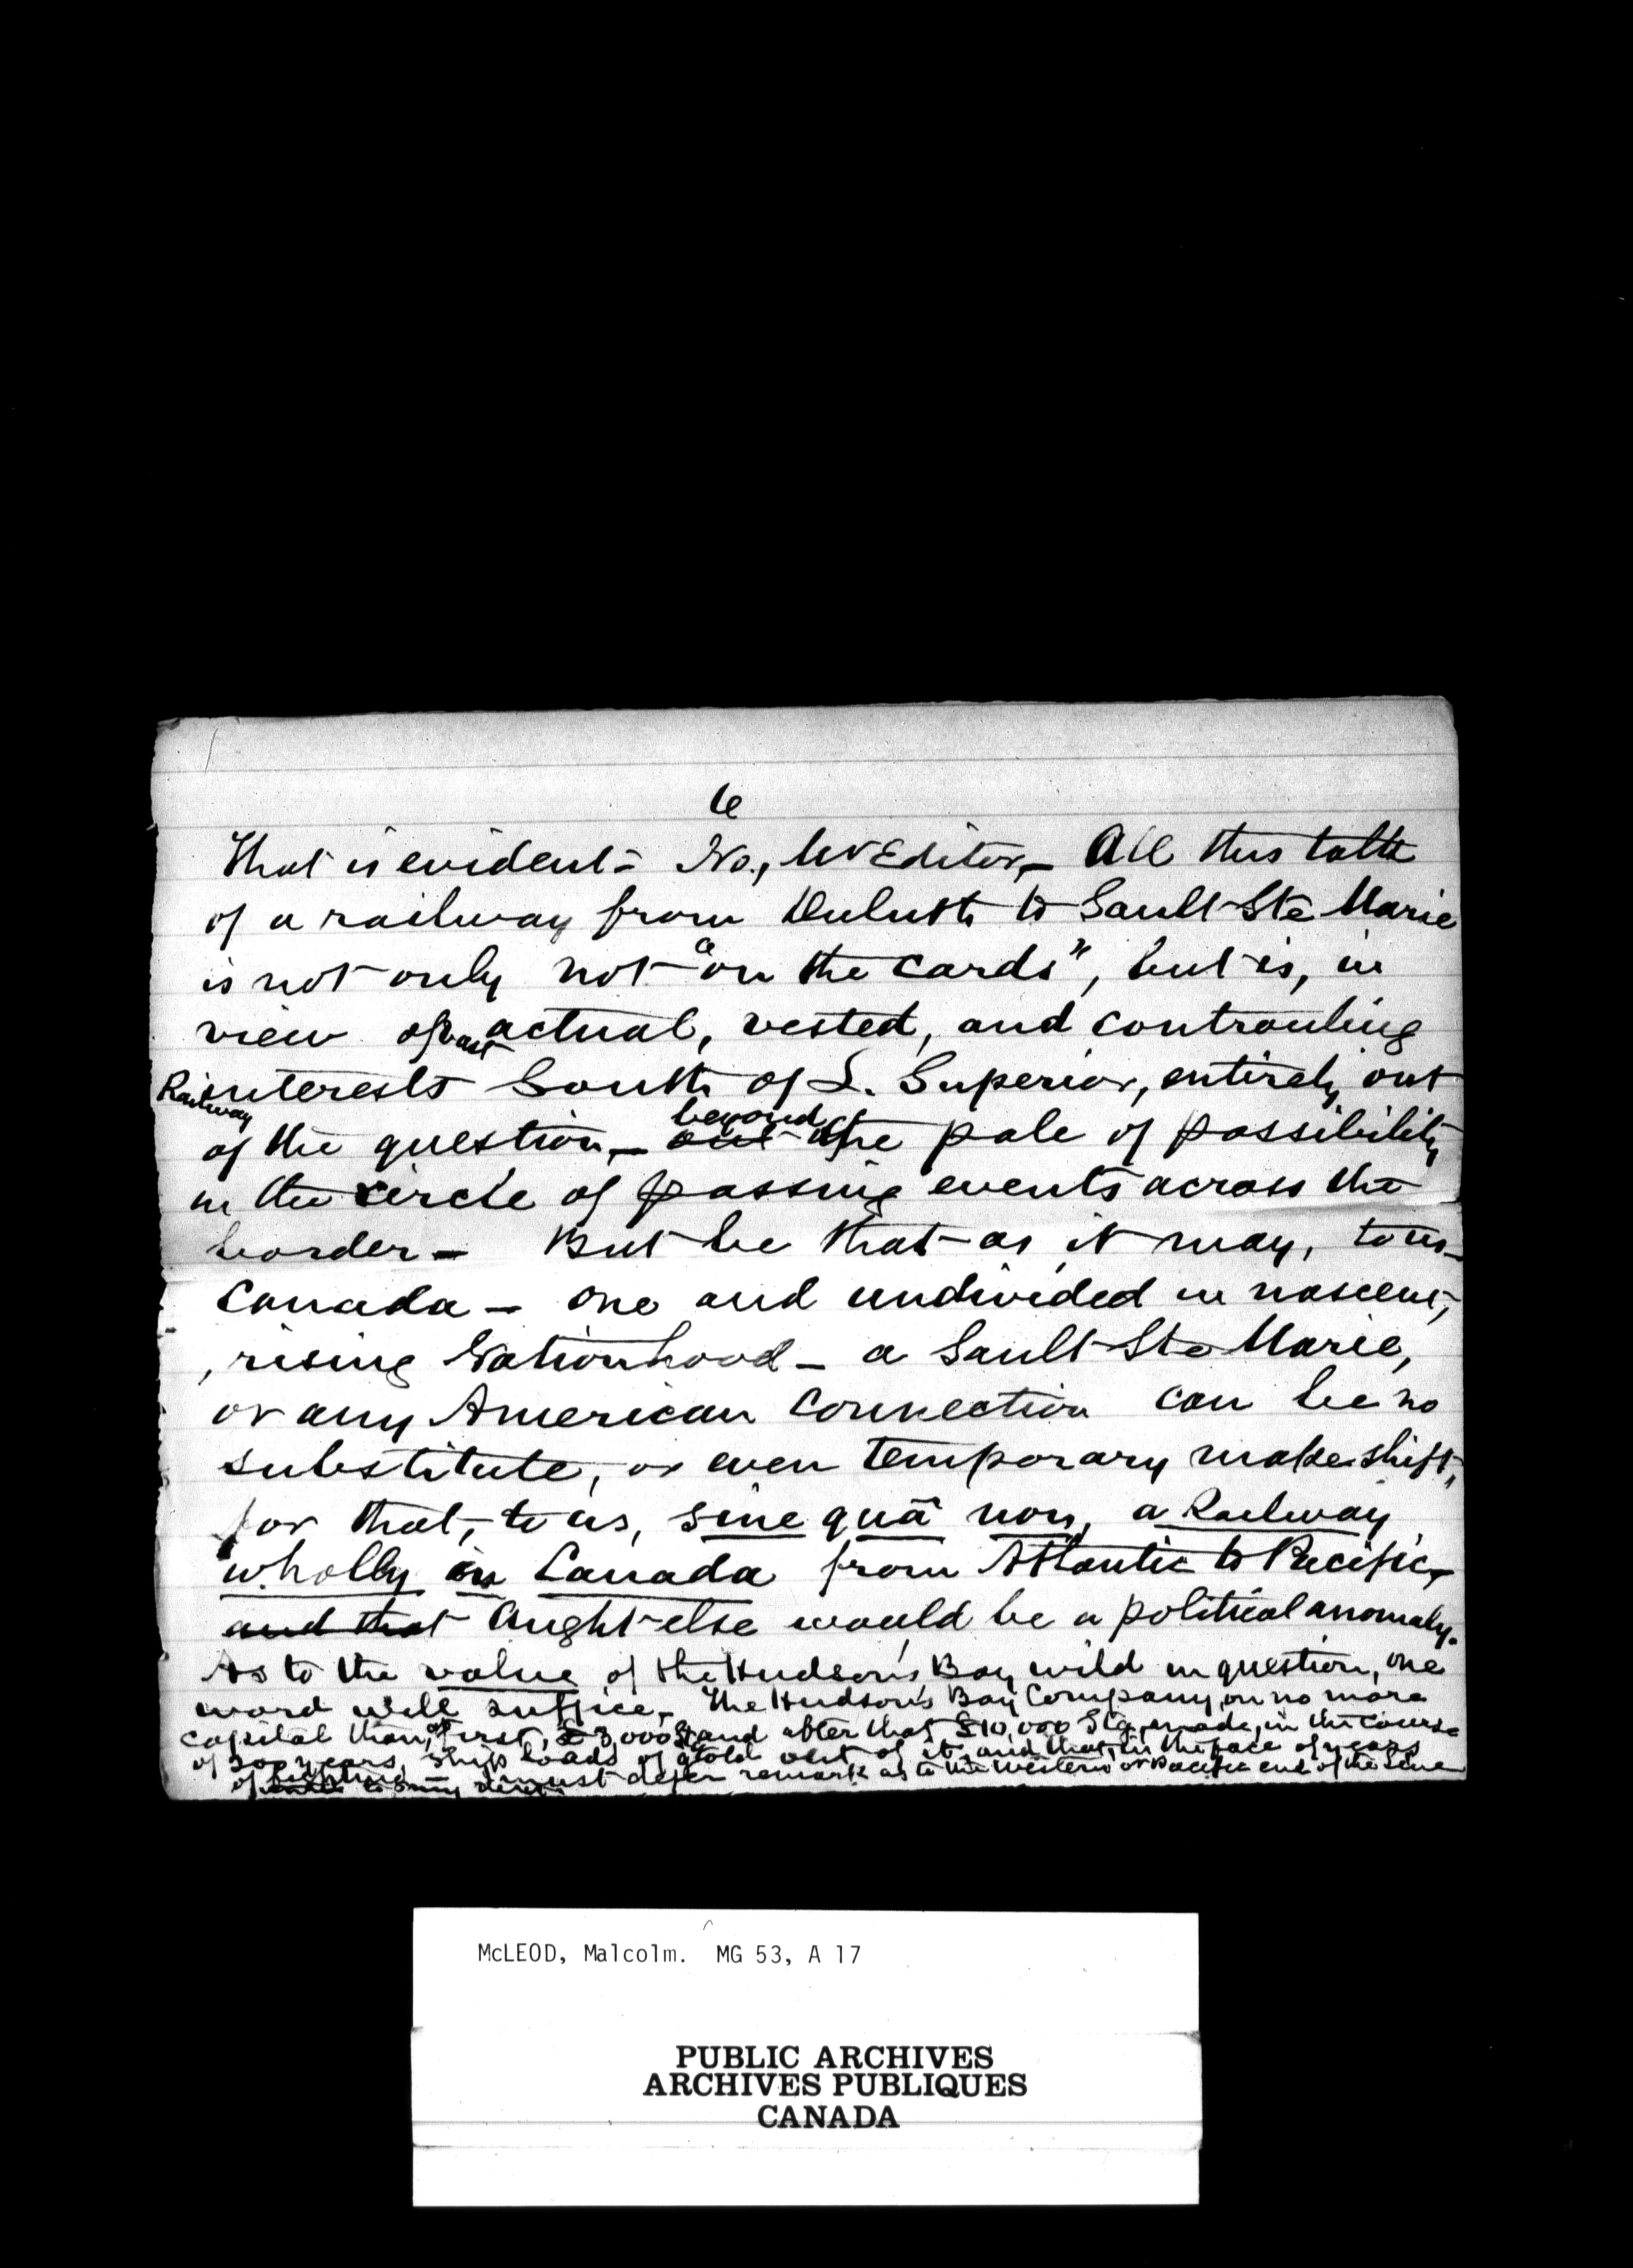 6
That is evident - No, Mr Editor, - All this talk
of a railway from Duluth to Sault Ste Marie
is not only not "on the cards", but is, in
view of vast actual, vested, and controuling
Railway interests South of L. Superior, entirely out
of the question, - out of beyond the pale of possibility
in the circle of passing events across the
border - But be that as it may, to us -
Canada - one and undivided in nascent,
, rising Nationhood - a Sault Ste Marie,
or any American Connection can be no
substitute, or even temporary make shift,
for that, to us, sine quâ non, a Railway
wholly in Canada from Atlantic to Pacific,
and that Aught else would be a political anomaly.
As to the value of the Hudson's Bay wild in question, one
word will suffice. The Hudson's Bay Company, on no more
capital than, at first, £3,000 Stg and after that £10,000 Stg, made, in the course
of 200 years, ship loads of gold out of it, and that, in the face of years
of fighting - must defer remark as to the Western or Pacific end of the Line
McLEOD, Malcolm. MG 53, A 17
PUBLIC ARCHIVES
ARCHIVES PUBLIQUES
CANADA